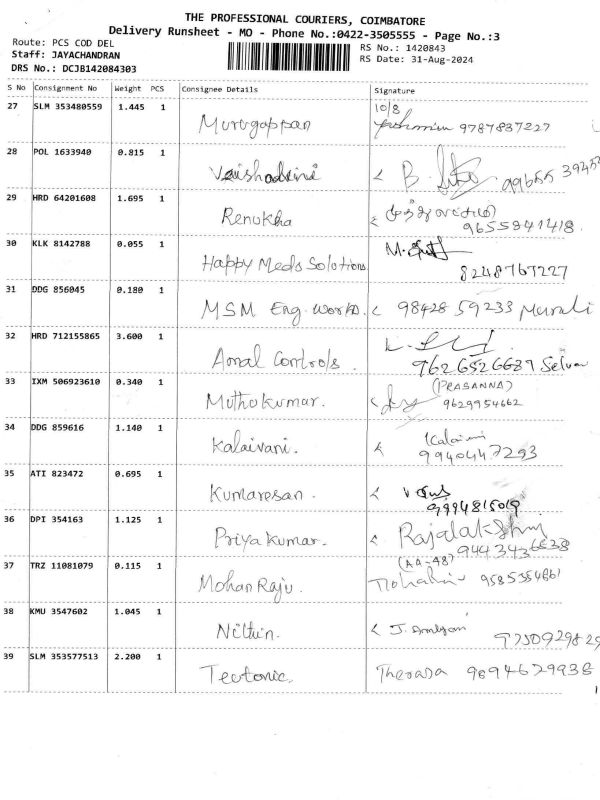 THE PROFESSIONAL COURIERS, COIMBATORE
Delivery Runsheet - MO - Phone No.:0422-3505555 - Page No.:3
Route: PCS COD DEL RS No.: 1420843
Staff: JAYACHANDRAN RS Date: 31-Aug-2024
DRS No.: DCJB142084303
S No Consignment No Weight PCS Consignee Details Signature
27 SLM 353480559 1.445 1 Murugappan 10/8
9787837227
28 POL 1633940 0.815 1 Vaishadini B.
29 HRD 64201608 1.695 1 Renukha
9655841418
30 KLK 8142788 0.055 1 Happy Meds Solutions M.
8248767227
31 DDG 856045 0.180 1 MSM Eng. Works. 98428 59233 Murali
32 HRD 712155865 3.600 1 Amal Controls.
9626526689 Selva
33 IXM 506923610 0.340 1 Muthukumar. (PRASANNA)
9629954662
34 DDG 859616 1.140 1 Kalaivani. Kalaivani
9940447293
35 ATI 823472 0.695 1 Kumaresan.
9994815019
36 DPI 354163 1.125 1 Priya Kumar. Rajalakshmy
9443436638
37 TRZ 11081079 0.115 1 Mohan Raju. (AA-48)
9585354661
38 KMU 3547602 1.045 1 Nithin. J.
9750929829
39 SLM 353577513 2.200 1 Teutonic. Therasa 9694629938